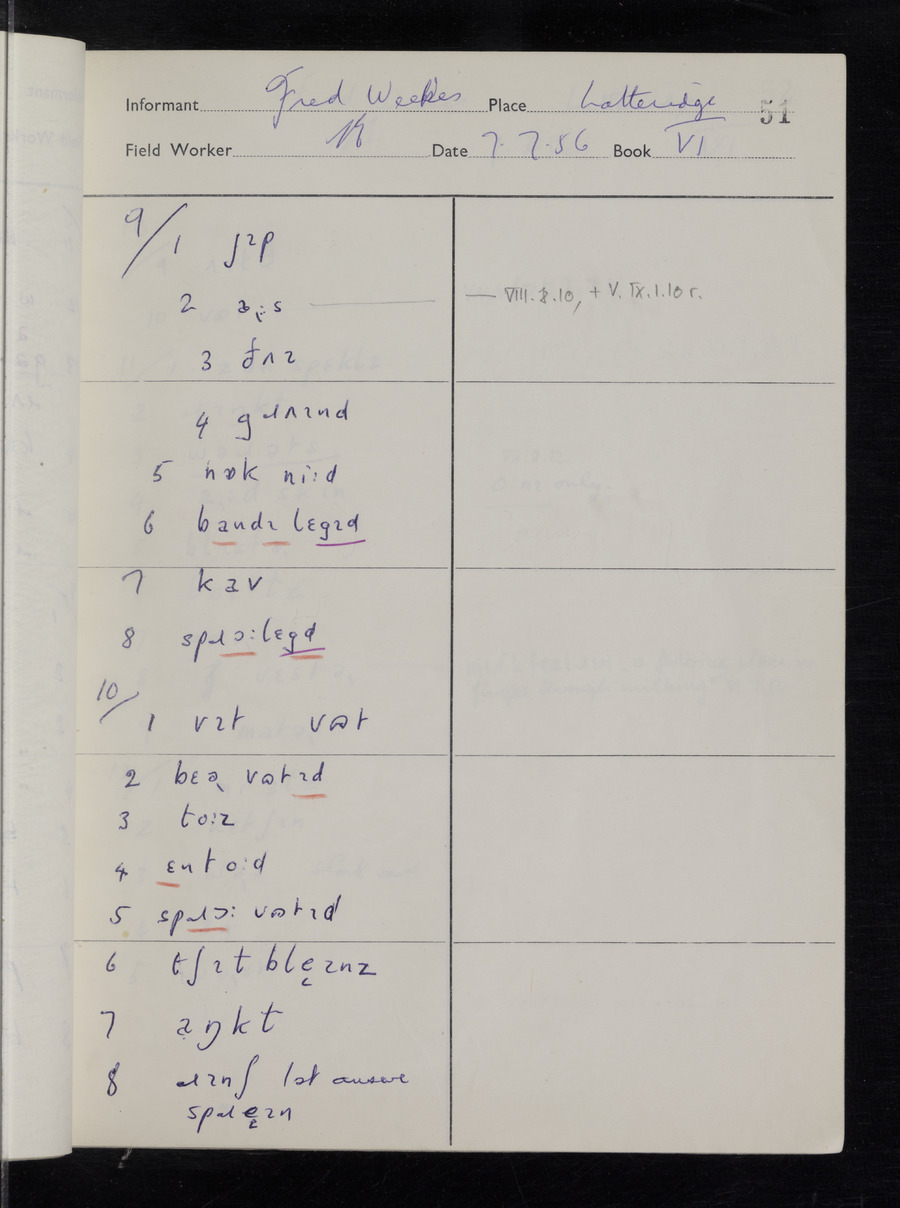 Informant Fred Weekes Place Latteridge 51
Field Worker Date 7.7.56 Book VI
9/1 ʃɪp
2 — VIII.8.10, + V.IX.1.10 r.
3
4 gɹʌɪnd
5 nɒk niːd
6 bandɪ lɛgɪd
7 kav
8 spɹɔːlɛgd
10/1 vɪt vɒt
2 vɒtɪd
3 toːz
4 ɛn toːd
5 spɹɔː vɒtɪd
6 tʃɪt bleɪnz
7 aŋkt
8 ɹɪnʃ 1st answer
spɹeɪn